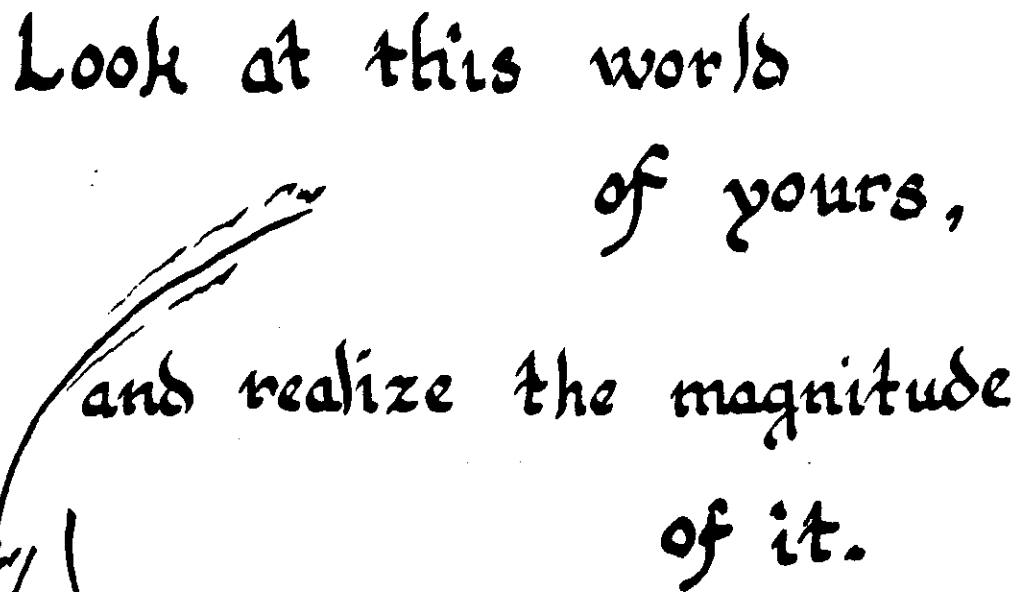 Look at this world
of yours,
and realize the magnitude
of it.